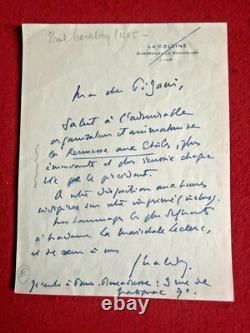 Paul Geraldy 1885-
LA COLLINE
VAR
Mon cher Pigani,
Salut à l'admirable
organisateur et animateur de
la Kermesse aux Etoiles, plus
émouvante et plus réussie chaque
que la précédente.
A votre disposition aux heures
indiquées sur votre imprimé
Mes hommages les plus déférents
à Madame la Maréchale Leclerc,
et de coeur à vous
Géraldy
Je rentre à Paris. Mon adresse : 3 rue de
7e.